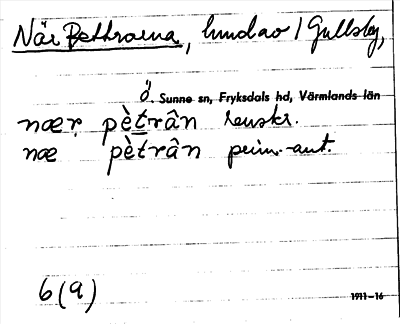 När Petterarna, hundar / Gullsby,
Ö. Sunne sn, Fryksdals hd, Värmlands län
nær pètrân renskr.
næ pètrân prim.-ant.
6(9)
1911-16